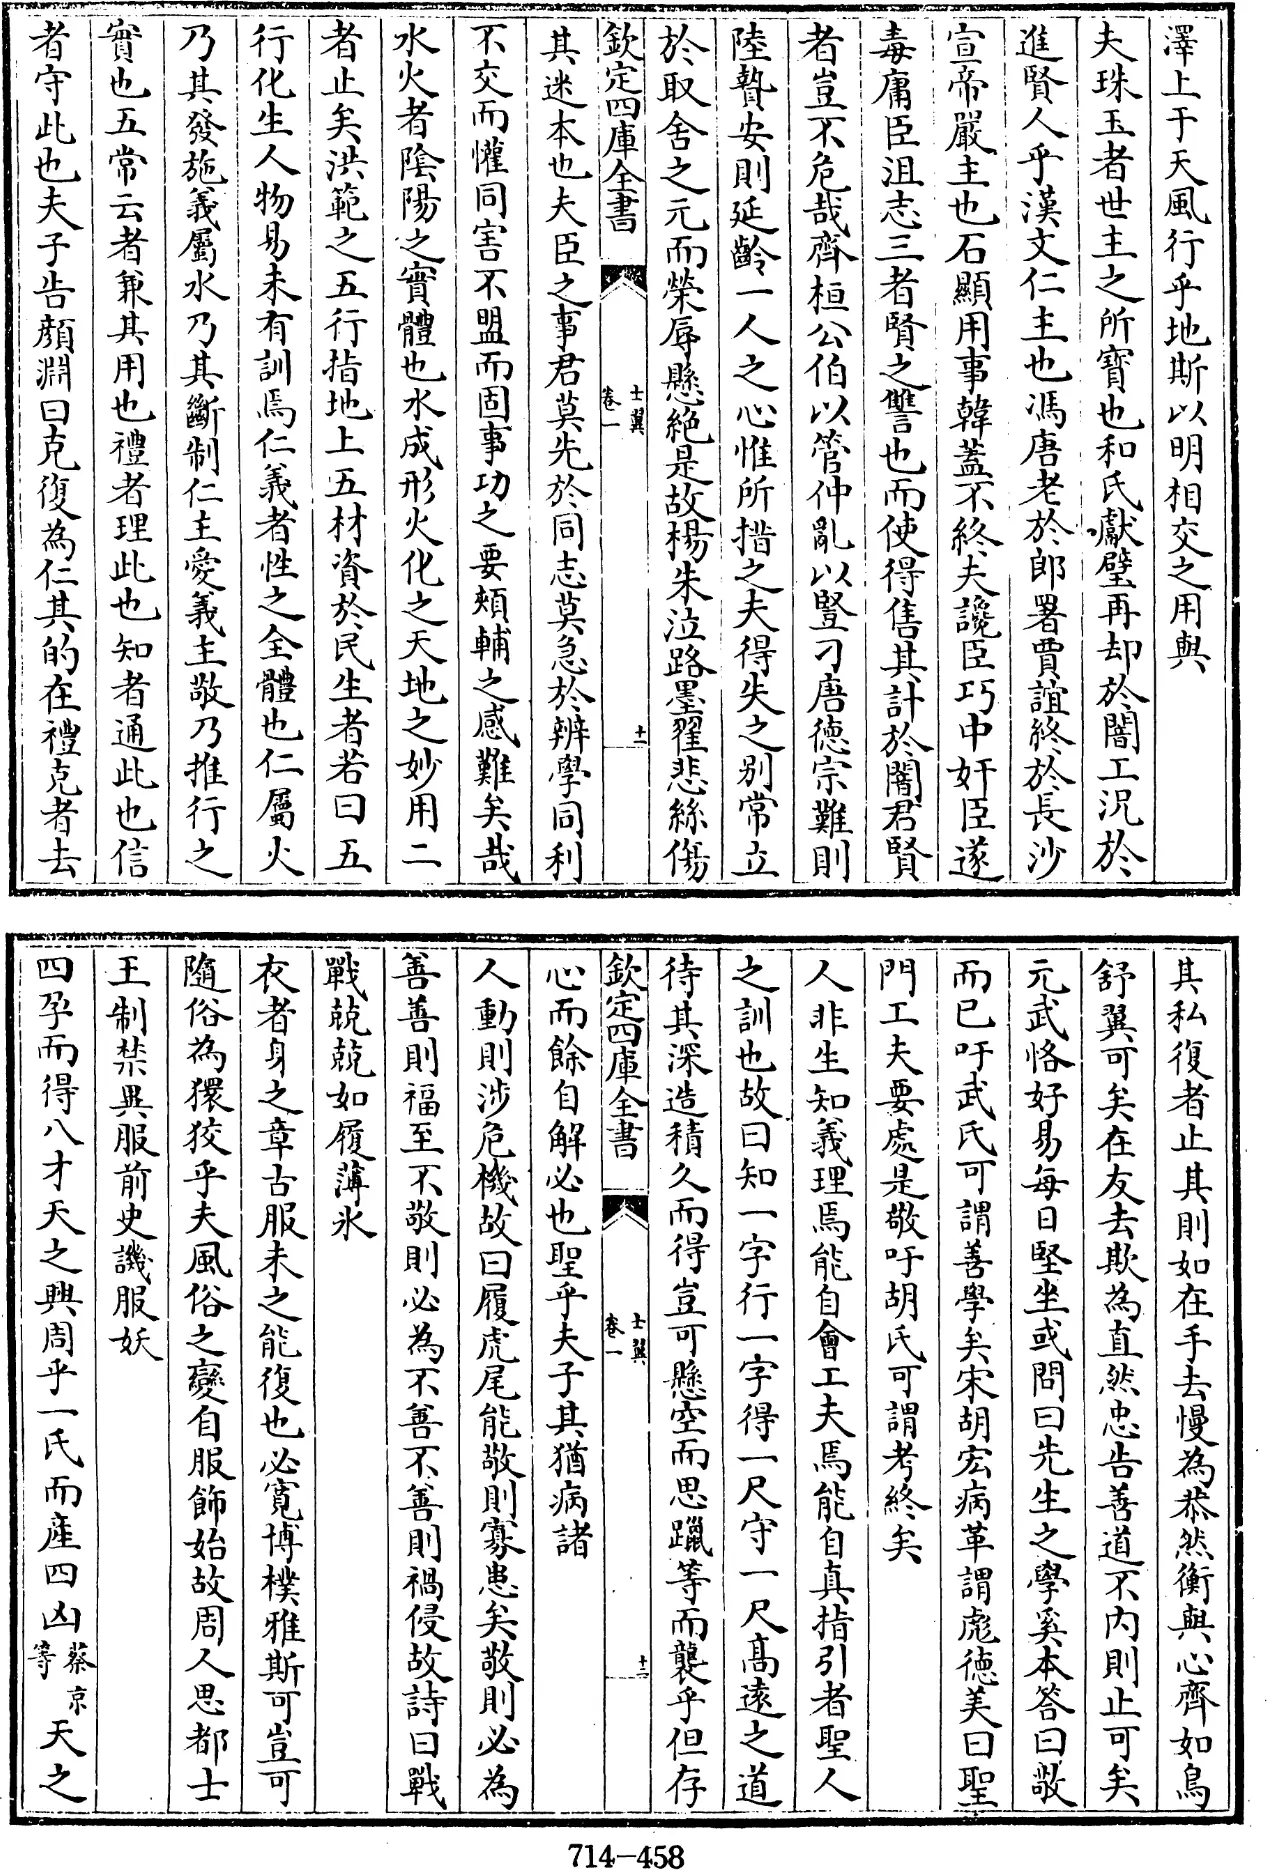 澤上于天風行乎地斯以明相交之用與
夫珠玉者世主之所寳也和氏獻璧再却於闇工况於
進賢人乎漢文仁主也馮唐老於郎署賈誼終於長沙
宣帝嚴主也石顯用事韓蓋不終夫讒臣巧中奸臣遂
毒庸臣沮志三者賢之讐也而使得售其計於闇君賢
者豈不危哉齊桓公伯以管仲亂以豎刁唐德宗難則
陸贄安則延齡一人之心惟所措之夫得失之别常立
於取舍之元而榮辱懸絶是故楊朱泣路墨翟悲絲傷
欽定四庫全書
士翼
卷一
十一
其迷本也夫臣之事君莫先於同志莫急於辨學同利
不交而懽同害不盟而固事功之要頰輔之感難矣哉
水火者陰陽之實體也水成形火化之天地之妙用二
者止矣洪範之五行指地上五材資於民生者若曰五
行化生人物易未有訓焉仁義者性之全體也仁屬火
乃其發施義屬水乃其斷制仁主愛義主敬乃推行之
實也五常云者兼其用也禮者理此也知者通此也信
者守此也夫子告顏淵曰克復為仁其的在禮克者去
其私復者止其則如在手去慢為恭然衡與心齊如鳥
舒翼可矣在友去欺為直然忠告善道不内則止可矣
元武恪好易每日堅坐或問曰先生之學奚本答曰敬
而已吁武氏可謂善學矣宋胡宏病革謂彪德美曰聖
門工夫要處是敬吁胡氏可謂考終矣
人非生知義理焉能自會工夫焉能自真指引者聖人
之訓也故曰知一字行一字得一尺守一尺高遠之道
待其深造積久而得豈可懸空而思躐等而襲乎但存
欽定四庫全書
士翼
卷一
十二
心而餘自解必也聖乎夫子其猶病諸
人動則涉危機故曰履虎尾能敬則寡患矣敬則必為
善善則福至不敬則必為不善不善則禍侵故詩曰戰
戰兢兢如履薄氷
衣者身之章古服未之能復也必寛博樸雅斯可豈可
隨俗為獧狡乎夫風俗之變自服飾始故周人思都士
王制禁異服前史譏服妖
四孕而得八才天之興周乎一氏而産四凶蔡京等天之
714-458